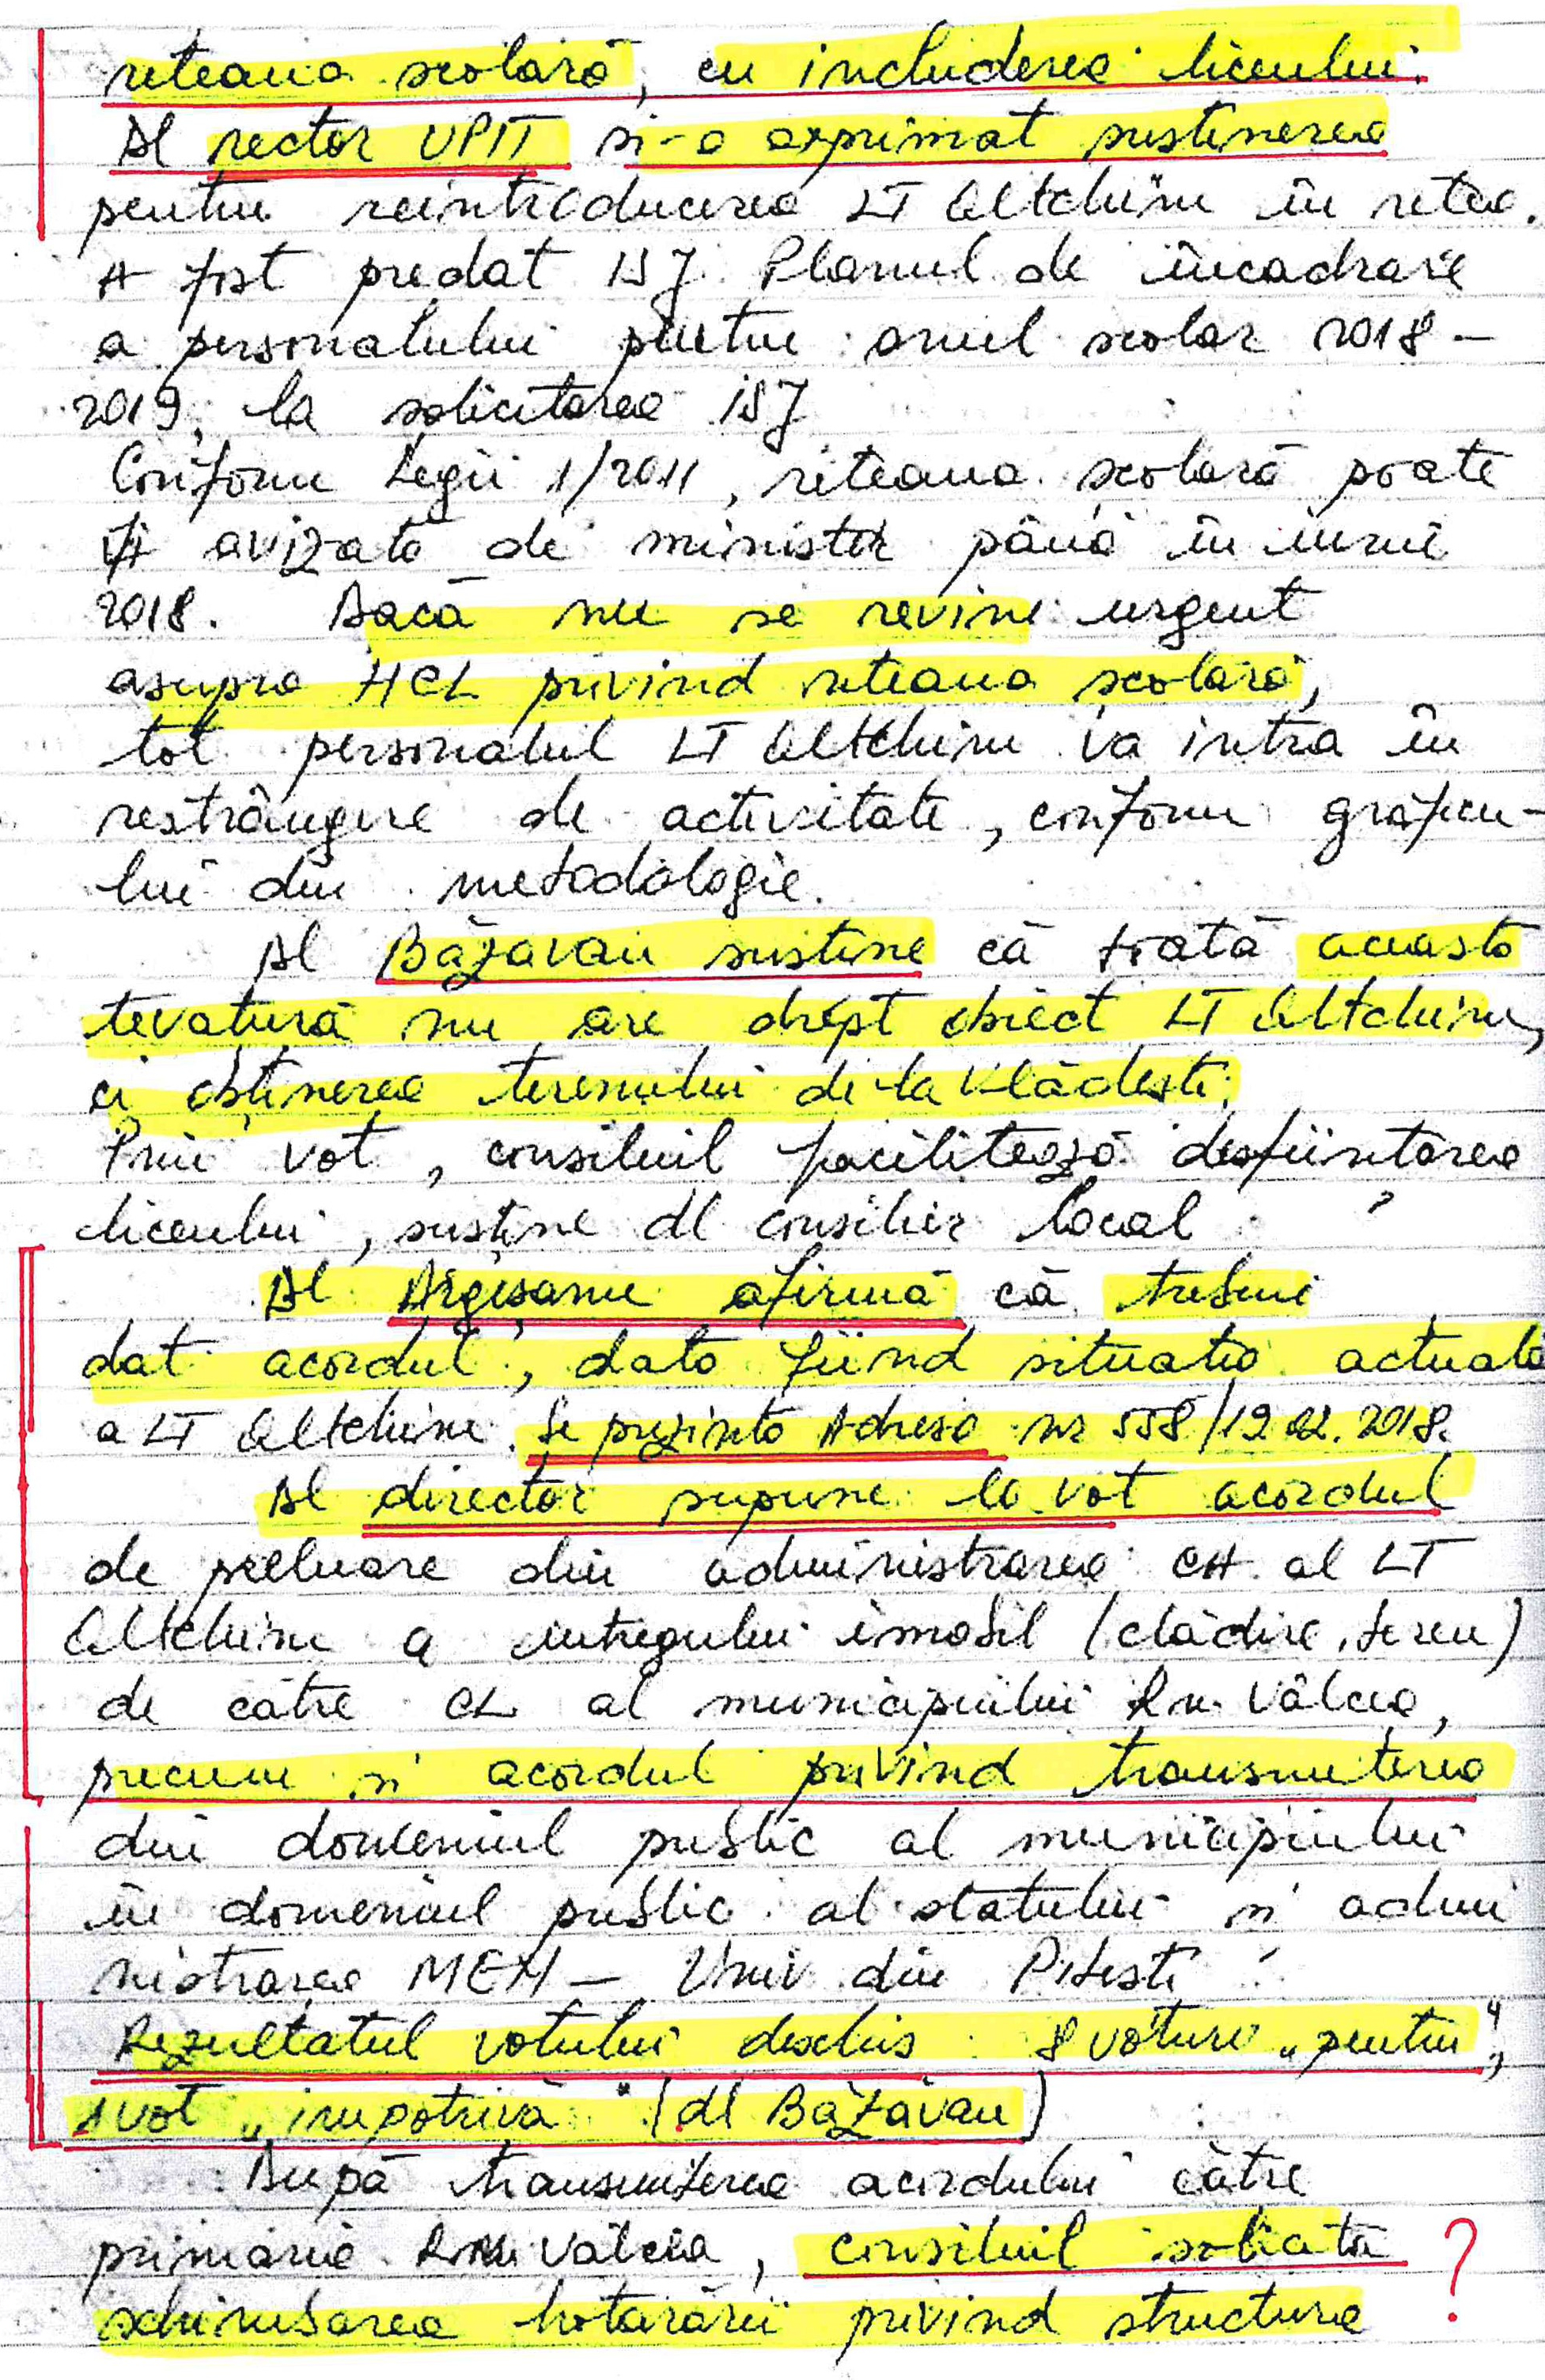 reteaua scolară, cu includerea liceului.
Dl rector UPIT si-a exprimat sustinerea
pentru reintroducerea LT Oltchim în retea.
A fost predat ISJ Planul de încadrare
a personalului pentru anul scolar 2018-
2019, la solicitarea ISJ
Conform Legii 1/2011, reteaua scolară poate
fi avizată de minister până în iunie
2018. Dacă nu se revine urgent
asupra HCL privind reteaua scolară,
tot personalul LT Oltchim va intra în
restrângere de activitate, conform graficu-
lui din metodologie.
Dl Băzăvan sustine că toată aceasta
tevatură nu are drept obiect LT Oltchim,
ci obținerea terenului de la Vlădesti.
Prin vot, consiliul facilitează desfiintarea
liceului, susține dl consilier local.
Dl Argeșanu afirmă că trebuie
dat acordul, dată fiind situatia actuală
a LT Oltchim. Se prezintă Adresa nr 558/19.02.2018.
Dl director supune la vot acordul
de preluare din administrarea CA al LT
Oltchim a întregului imobil (clădire, teren)
de către CL al municipiului Rm. Vâlcea,
precum si acordul privind transmiterea
din domeniul public al municipiului
în domeniul public al statului si admi
nistrarea MEN - Univ din Pitesti.
Rezultatul votului deschis: 8 voturi „pentru",
1 vot „împotrivă" (dl Băzăvan)
După transmiterea acordului către
primăria Rm Vâlcea, consiliul solicită ?
schimbarea hotărârii privind structura